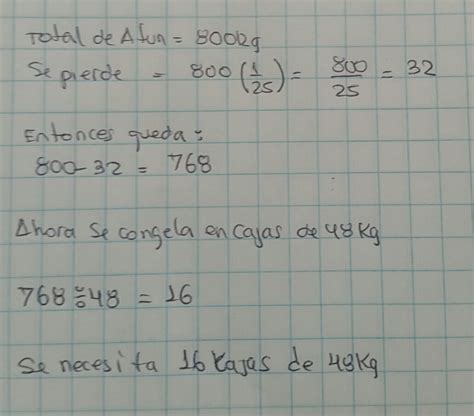 Total de Atun = 800kg
Se pierde = 800 (1/25) = 800/25 = 32
Entonces queda:
800-32 = 768
Ahora se congela en cajas de 48Kg
768 ÷ 48 = 16
Se necesita 16 cajas de 48Kg